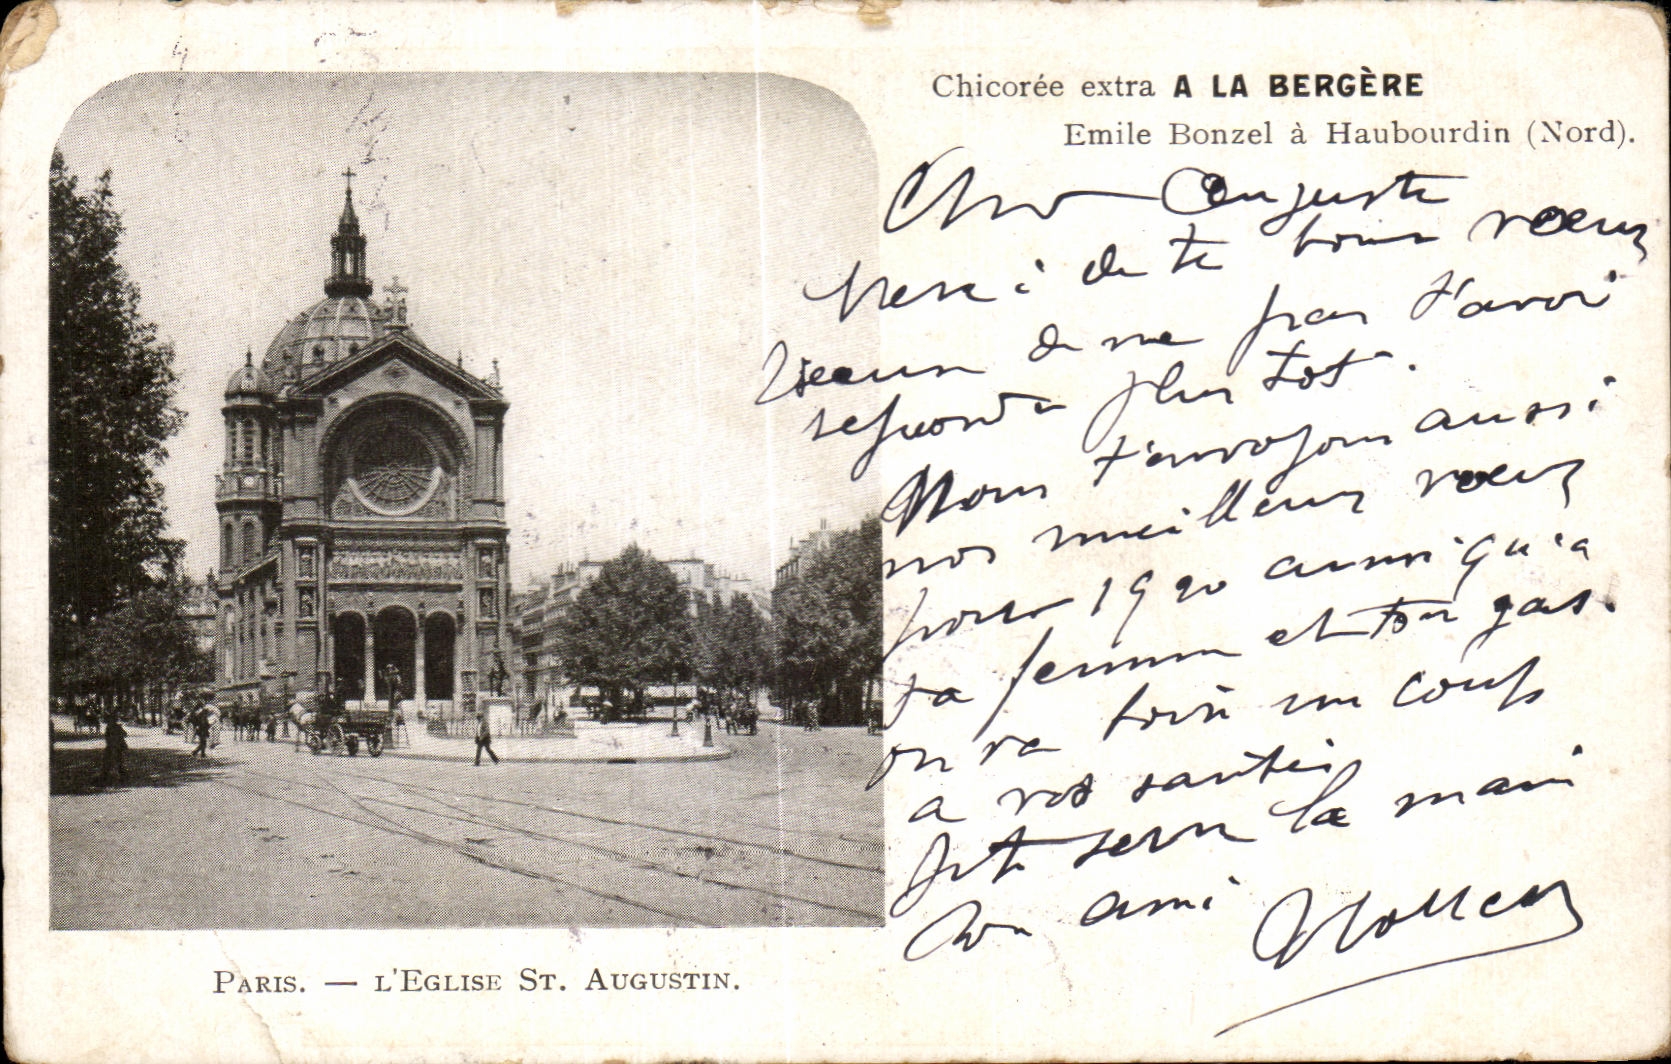 Chicorée extra A LA BERGÈRE
Emile Bonzel à Haubourdin (Nord).
Cher Auguste
Merci de te bons vœux
de ne pas t'avoir
repondu plus tot.
Nous t'envoyons aussi
nos meilleurs vœux
pour 1920 ainsi qu'a
ta femme et ton gas.
on va boire un coup
a vos santés
Je te serre la main
Ton ami
PARIS. — L'EGLISE ST. AUGUSTIN.